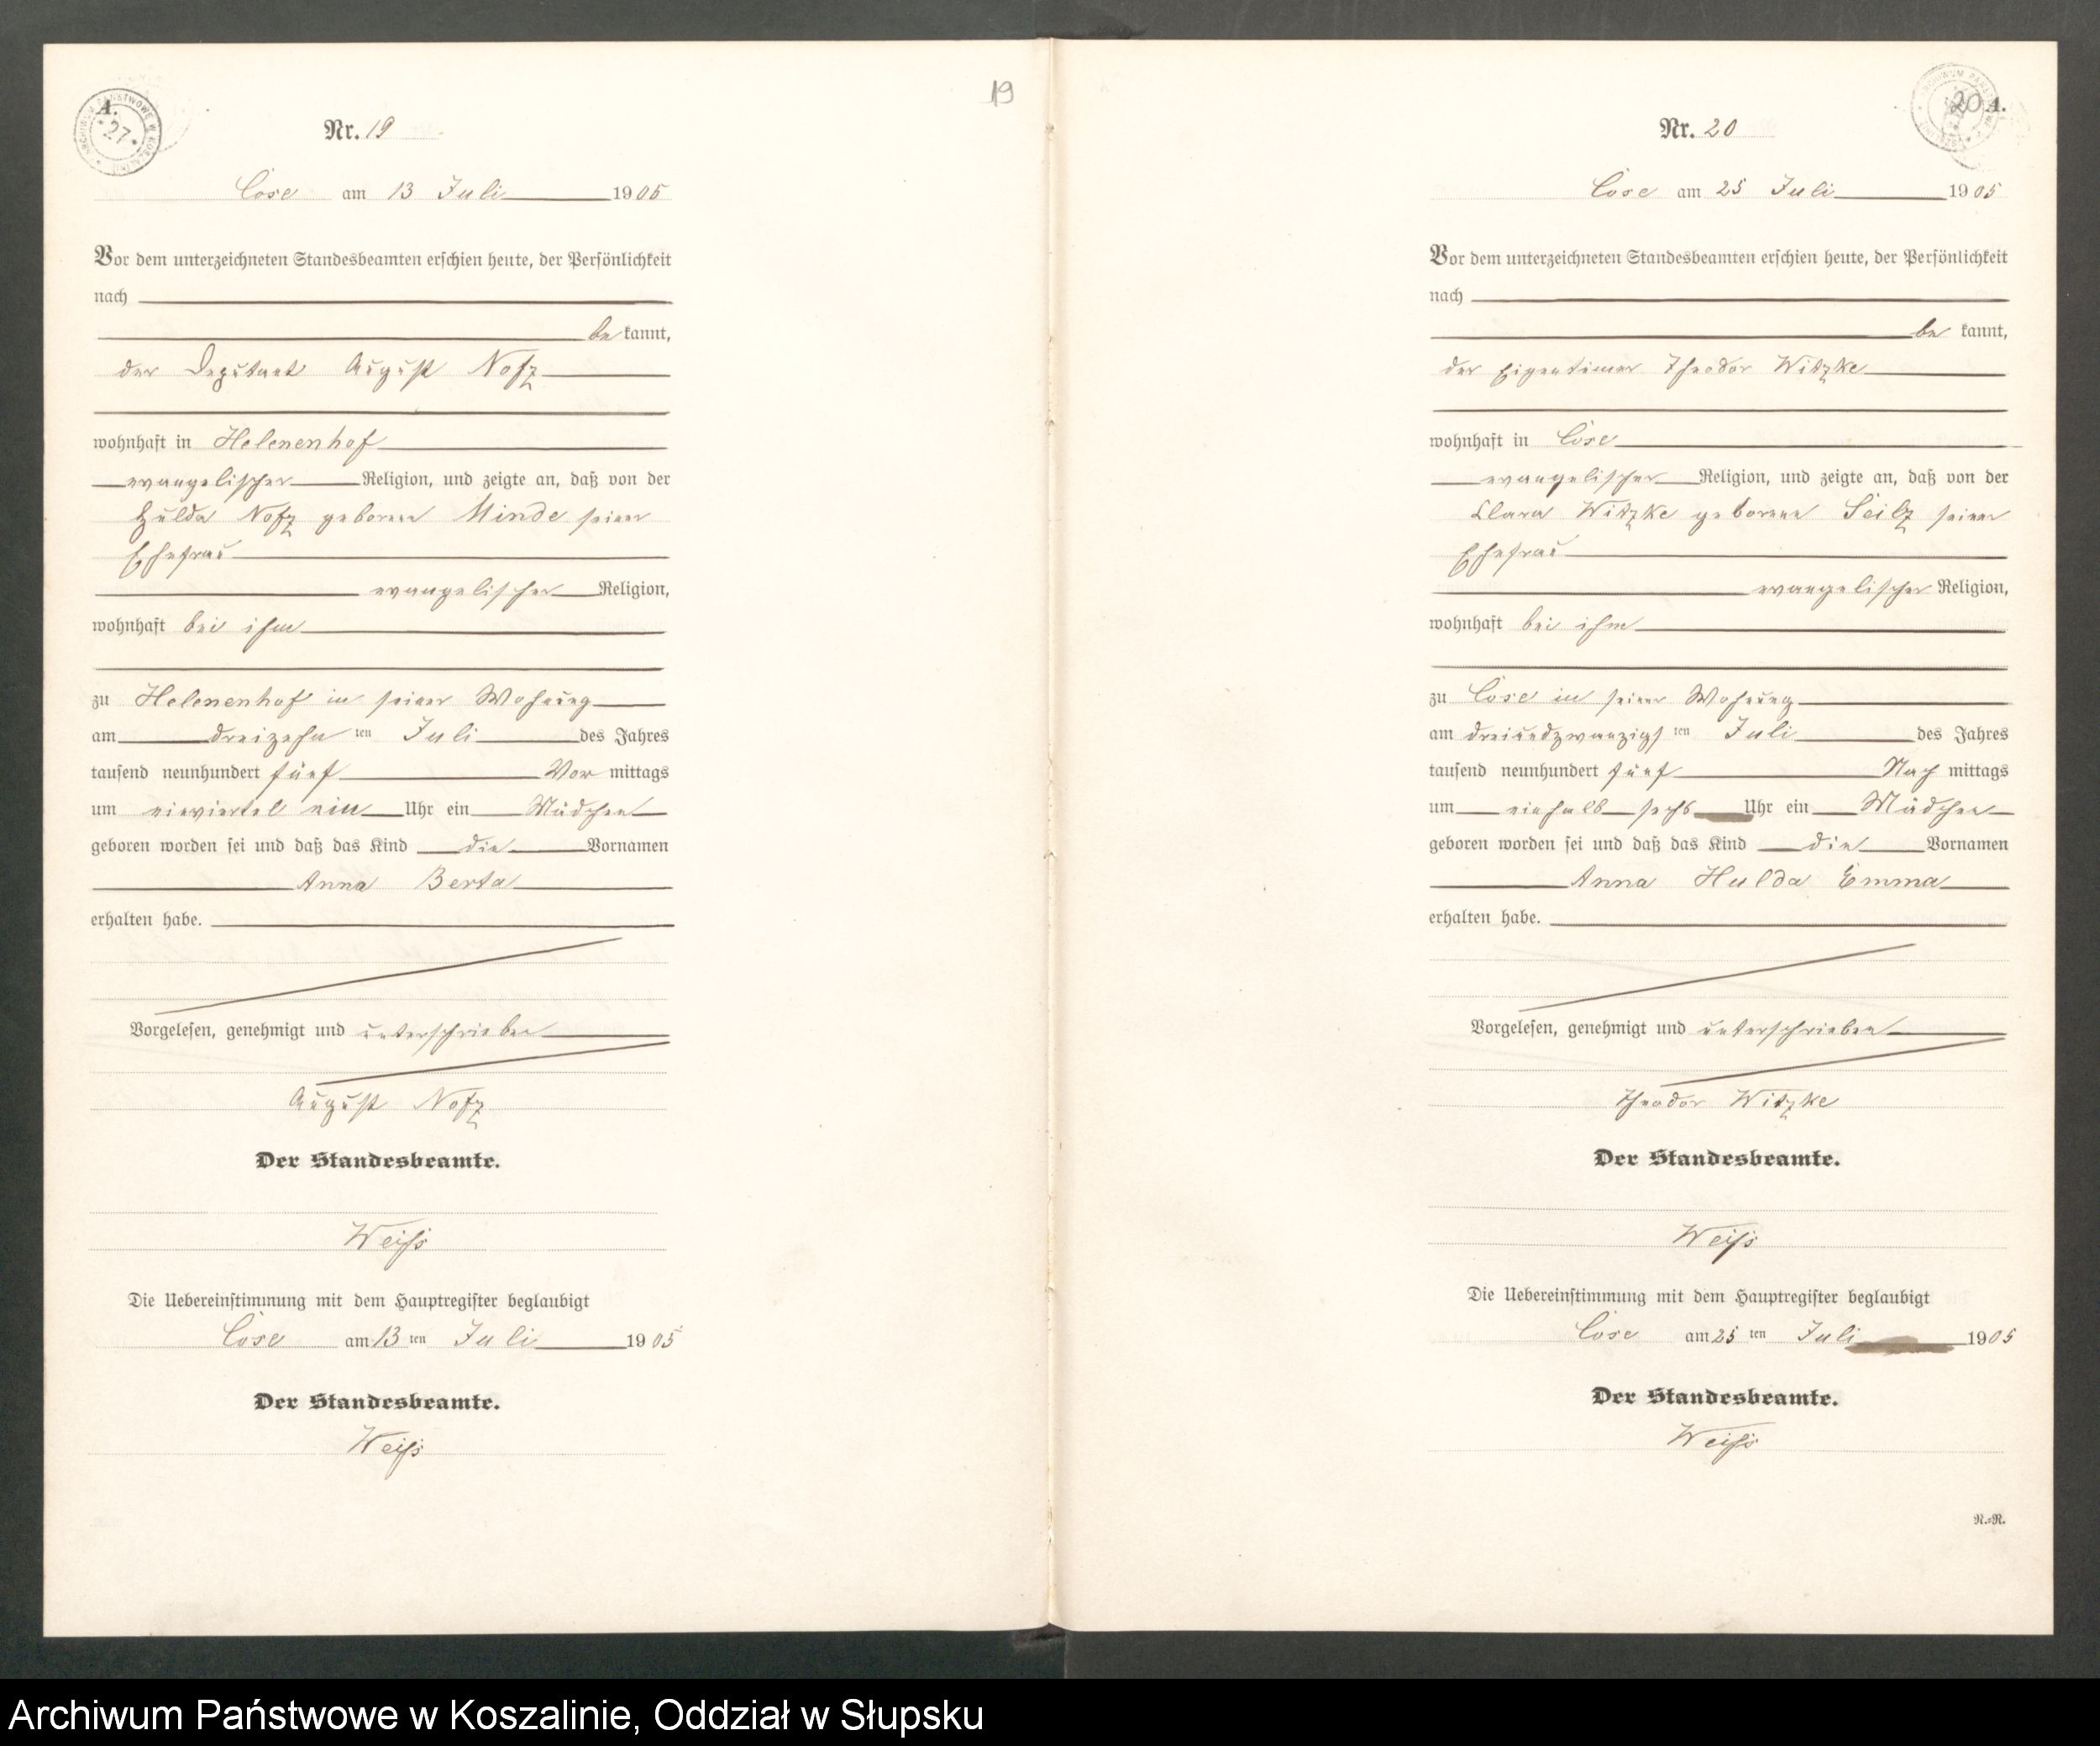 A.
27
Nr. 19
Cose am 13 Juli 1905
Vor dem unterzeichneten Standesbeamten erschien heute, der Persönlichkeit
nach
be kannt,
der Deputant August Nofz
wohnhaft in Helenenhof
evangelischer Religion, und zeigte an, daß von der
Hulda Nofz geborene Minde seiner
Ehefrau
evangelischer Religion,
wohnhaft bei ihm
zu Helenenhof in seiner Wohnung
am dreizehn ten Juli des Jahres
tausend neunhundert fünf Vor mittags
um einviertel ein Uhr ein Mädchen
geboren worden sei und daß das Kind die Vornamen
Anna Berta
erhalten habe.
Vorgelesen, genehmigt und unterschrieben
August Nofz
Der Standesbeamte.
Weiß
Die Uebereinstimmung mit dem Hauptregister beglaubigt
Cose am 13 ten Juli 1905
Der Standesbeamte.
Weiß
19
20 A.
Nr. 20
Cose am 25 Juli 1905
Vor dem unterzeichneten Standesbeamten erschien heute, der Persönlichkeit
nach
be kannt,
der Eigentümer Theodor Witzke
wohnhaft in Cose
evangelischer Religion, und zeigte an, daß von der
Clara Witzke geborene Seilz seiner
Ehefrau
evangelischer Religion,
wohnhaft bei ihm
zu Cose in seiner Wohnung
am dreiundzwanzigs ten Juli des Jahres
tausend neunhundert fünf Nach mittags
um einhalb sechs Uhr ein Mädchen
geboren worden sei und daß das Kind die Vornamen
Anna Hulda Emma
erhalten habe.
Vorgelesen, genehmigt und unterschrieben
Theodor Witzke
Der Standesbeamte.
Weiß
Die Uebereinstimmung mit dem Hauptregister beglaubigt
Cose am 25 ten Juli 1905
Der Standesbeamte.
Weiß
R.=R.
Archiwum Państwowe w Koszalinie, Oddział w Słupsku